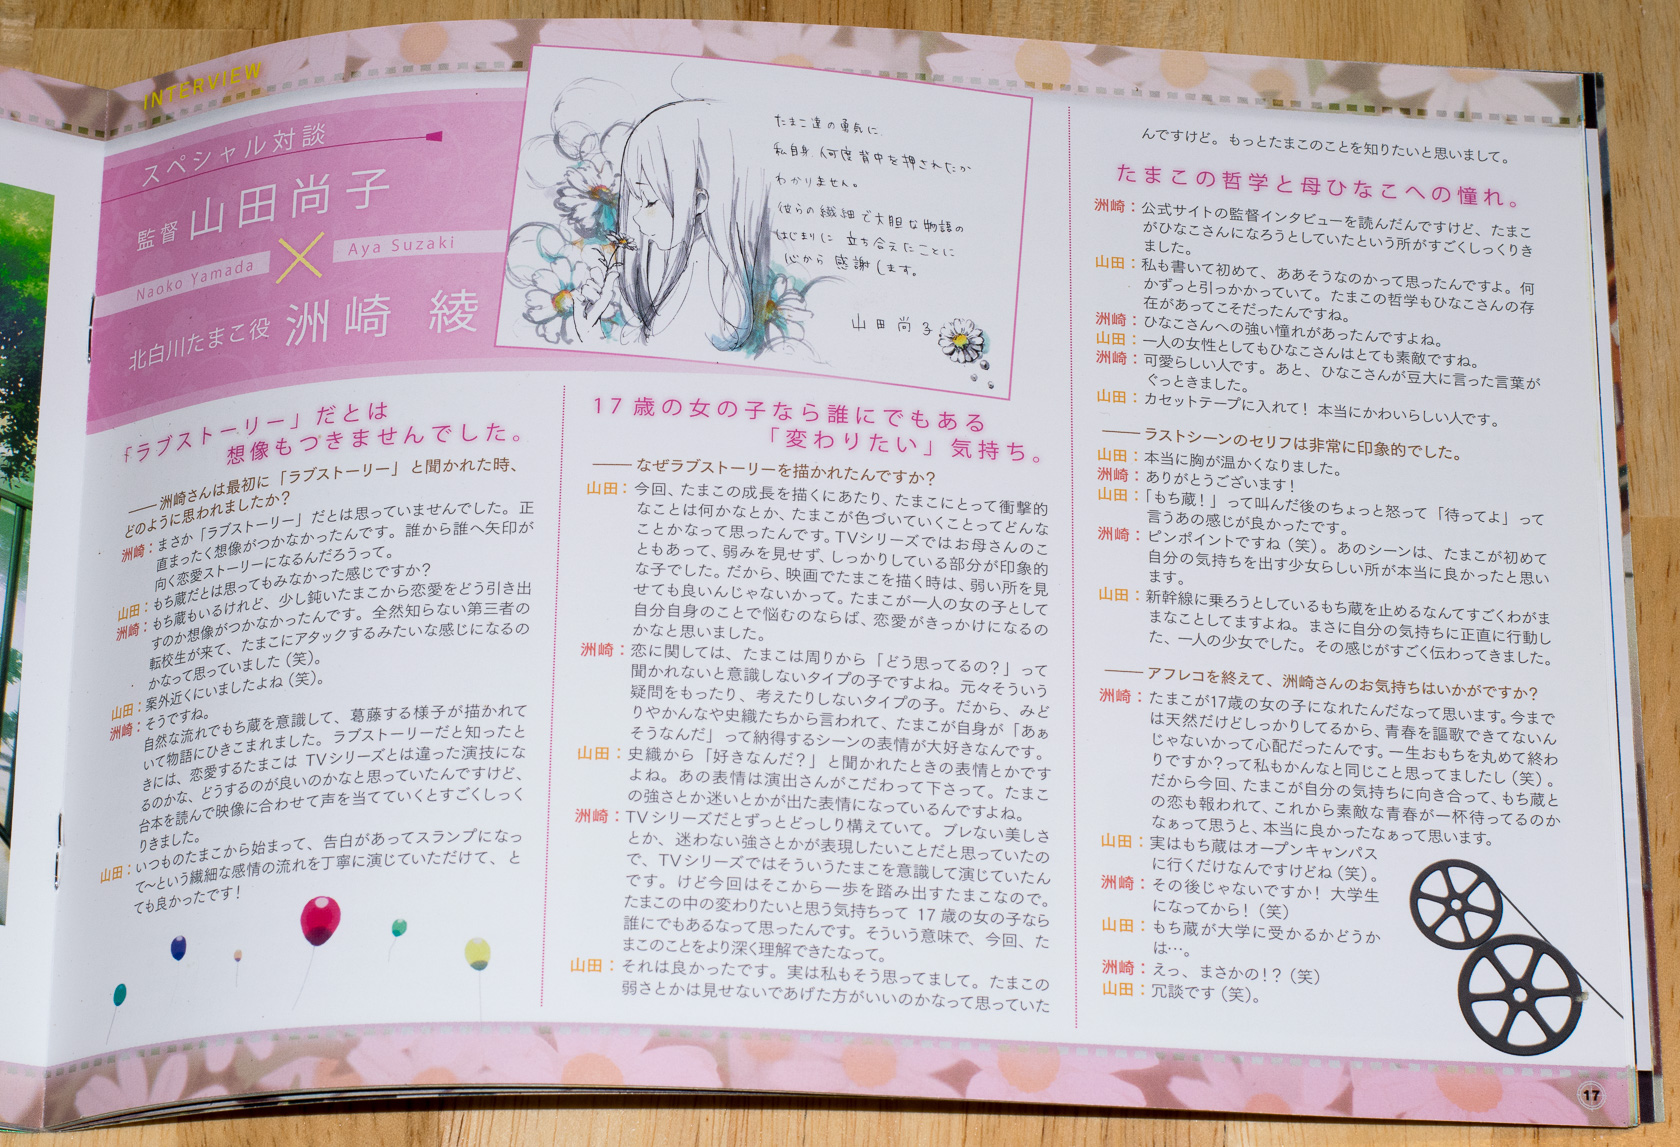 INTERVIEW
スペシャル対談
監督 山田尚子
Naoko Yamada
×
Aya Suzaki
北白川たまこ役 洲崎 綾
たまこ達の勇気に、
私自身、何度背中を押されたか
わかりません。
彼らの繊細で大胆な物語の
はじまりに 立ち会えたことに
心から 感謝します。
山田尚子
「ラブストーリー」だとは
想像もつきませんでした。
――洲崎さんは最初に「ラブストーリー」と聞かれた時、
どのように思われましたか?
洲崎：まさか「ラブストーリー」だとは思っていませんでした。正
直まったく想像がつかなかったんです。誰から誰へ矢印が
向く恋愛ストーリーになるんだろうって。
山田：もち蔵だとは思ってもみなかった感じですか?
洲崎：もち蔵もいるけれど、少し鈍いたまこから恋愛をどう引き出
すのか想像がつかなかったんです。全然知らない第三者の
転校生が来て、たまこにアタックするみたいな感じになるの
かなって思っていました（笑）。
山田：案外近くにいましたよね（笑）。
洲崎：そうですね。
自然な流れでもち蔵を意識して、葛藤する様子が描かれて
いて物語にひきこまれました。ラブストーリーだと知ったと
きには、恋愛するたまこは TVシリーズとは違った演技にな
るのかな、どうするのが良いのかなと思っていたんですけど、
台本を読んで映像に合わせて声を当てていくとすごくしっく
りきました。
山田：いつものたまこから始まって、告白があってスランプになっ
て〜という繊細な感情の流れを丁寧に演じていただけて、と
ても良かったです！
17歳の女の子なら誰にでもある
「変わりたい」気持ち。
――なぜラブストーリーを描かれたんですか?
山田：今回、たまこの成長を描くにあたり、たまこにとって衝撃的
なことは何かなとか、たまこが色づいていくことってどんな
ことかなって思ったんです。TVシリーズではお母さんのこ
ともあって、弱みを見せず、しっかりしている部分が印象的
な子でした。だから、映画でたまこを描く時は、弱い所を見
せても良いんじゃないかって。たまこが一人の女の子として
自分自身のことで悩むのならば、恋愛がきっかけになるの
かなと思いました。
洲崎：恋に関しては、たまこは周りから「どう思ってるの？」って
聞かれないと意識しないタイプの子ですよね。元々そういう
疑問をもったり、考えたりしないタイプの子。だから、みど
りやかんなや史織たちから言われて、たまこが自身が「あぁ
そうなんだ」って納得するシーンの表情が大好きなんです。
山田：史織から「好きなんだ？」と聞かれたときの表情とかです
よね。あの表情は演出さんがこだわって下さって。たまこ
の強さとか迷いとかが出た表情になっているんですよね。
洲崎：TVシリーズだとずっとどっしり構えていて。ブレない美しさ
とか、迷わない強さとかが表現したいことだと思っていたの
で、TVシリーズではそういうたまこを意識して演じていたん
です。けど今回はそこから一歩を踏み出すたまこなので。
たまこの中の変わりたいと思う気持ちって 17歳の女の子なら
誰にでもあるなって思ったんです。そういう意味で、今回、た
まこのことをより深く理解できたなって。
山田：それは良かったです。実は私もそう思ってまして。たまこの
弱さとかは見せないであげた方がいいのかなって思っていた
んですけど。もっとたまこのことを知りたいと思いまして。
たまこの哲学と母ひなこへの憧れ。
洲崎：公式サイトの監督インタビューを読んだんですけど、たまこ
がひなこさんになろうとしていたという所がすごくしっくりき
ました。
山田：私も書いて初めて、ああそうなのかって思ったんですよ。何
かずっと引っかかっていて。たまこの哲学もひなこさんの存
在があってこそだったんですね。
洲崎：ひなこさんへの強い憧れがあったんですよね。
山田：一人の女性としてもひなこさんはとても素敵ですね。
洲崎：可愛らしい人です。あと、ひなこさんが豆大に言った言葉が
ぐっときました。
山田：カセットテープに入れて！ 本当にかわいらしい人です。
――ラストシーンのセリフは非常に印象的でした。
山田：本当に胸が温かくなりました。
洲崎：ありがとうございます！
山田：「もち蔵！」って叫んだ後のちょっと怒って「待ってよ」って
言うあの感じが良かったです。
洲崎：ピンポイントですね（笑）。あのシーンは、たまこが初めて
自分の気持ちを出す少女らしい所が本当に良かったと思い
ます。
山田：新幹線に乗ろうとしているもち蔵を止めるなんてすごくわがま
まなことしてますよね。まさに自分の気持ちに正直に行動し
た、一人の少女でした。その感じがすごく伝わってきました。
――アフレコを終えて、洲崎さんのお気持ちはいかがですか?
洲崎：たまこが17歳の女の子になれたんだなって思います。今まで
は天然だけどしっかりしてるから、青春を謳歌できてないん
じゃないかって心配だったんです。一生おもちを丸めて終わ
りですか？って私もかんなと同じこと思ってましたし（笑）。
だから今回、たまこが自分の気持ちに向き合って、もち蔵と
の恋も報われて、これから素敵な青春が一杯待ってるのか
なぁって思うと、本当に良かったなぁって思います。
山田：実はもち蔵はオープンキャンパス
に行くだけなんですけどね（笑）。
洲崎：その後じゃないですか！ 大学生
になってから！（笑）
山田：もち蔵が大学に受かるかどうか
は…。
洲崎：えっ、まさかの！？（笑）
山田：冗談です（笑）。
17